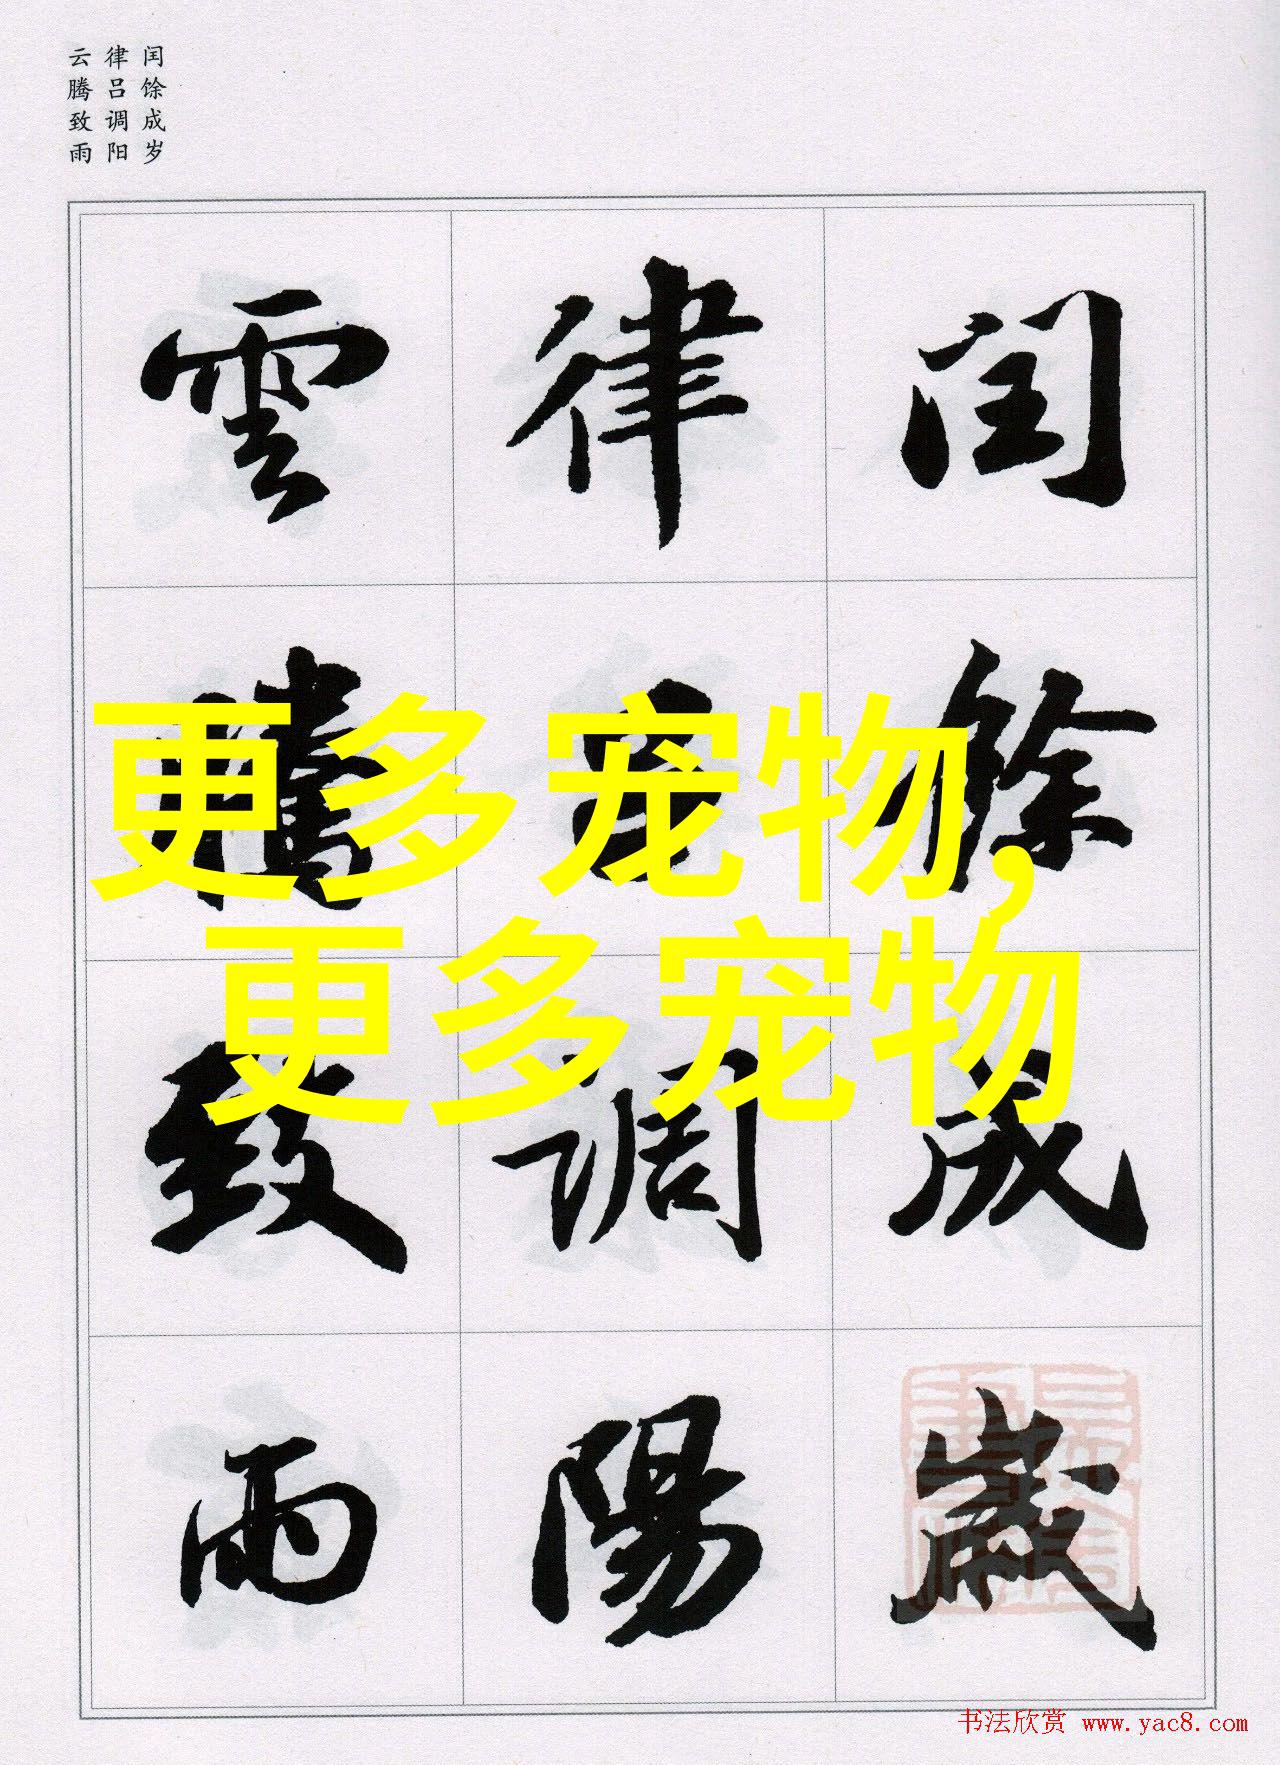 闰馀成岁
律吕调阳
云腾致雨
閏餘成歲
律吕調陽
雲騰致雨
更多宠物,
更多宠物
书法欣赏 www.yac8.com